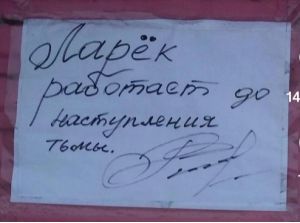 Ларёк
работает до
наступления
тьмы.
14